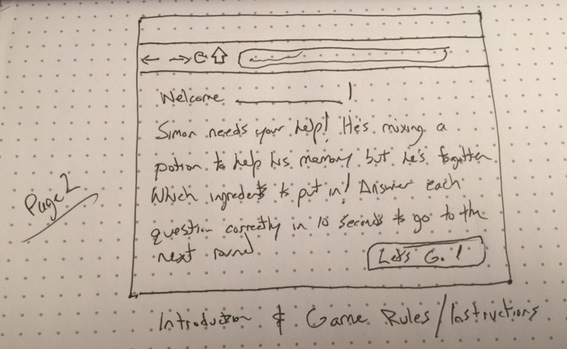 Welcome ___________!
Simon needs your help! He's mixing a
potion to help his memory but he's forgotten
which ingredients to put in! Answer each
question correctly in 10 seconds to go to the
next round
Let's Go!
Page 2
Introduction & Game Rules/Instructions